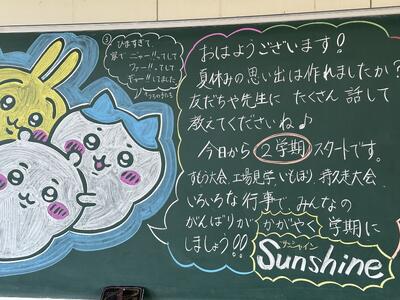 おはようございます!
夏休みの思い出は作れましたか?
友だちや先生に たくさん 話して
教えてくださいね♪
今日から 2学期 スタートです。
すもう大会、工場見学、いもほり、持久走大会、
いろいろな行事で、みんなの
がんばりが かがやく 学期に
しましょう!!
サンシャイン
Sunshine
③
ひますぎて、
家で ニャー!!ってして
ワァー!!ってして
ギャー!!してました